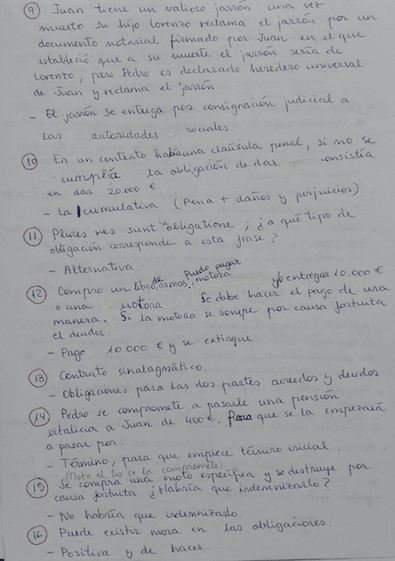 9 Juan tiene un valioso jarrón una vez
muerto su hijo Lorenzo reclama el jarrón por un
documento notarial firmado por Juan en el que
estableció que a su muerte el jarrón sería de
Lorenzo, pero Pedro es declarado heredero universal
de Juan y reclama el jarrón
- El jarrón se entrega por consignación judicial a
las autoridades sociales
10 En un contrato había una cláusula penal, si no se
cumplía la obligación de dar consistía
en dar 20.000 €
- La cumulativa (Pena + daños y perjuicios)
11 Plures res sunt obligatione, ¿a qué tipo de
obligación corresponde a esta frase?
- Alternativa
12 Compro un libro de armas, Puedo pagar motora yo entregar 10.000 €
o una motora Se debe hacer el pago de una
manera. Si la motora se rompe por causa fortuita
el deudor:
- Pago 10000 € y se extingue
13 Contrato sinalagmático.
- Obligaciones para las dos partes acreedor y deudor
14 Pedro se compromete a pasarle una pensión
vitalicia a Juan de 400€. Para que se la empezará
a pasar por:
- Término, para que empiece término inicial
(Moto el tío se la compromete)
15 Se compra una moto específica y se destruye por
causa fortuita ¿Habría que indemnizarlo?
- No habría que indemnizarlo
16 Puede existir mora en las obligaciones.
- Positiva y de hacer.